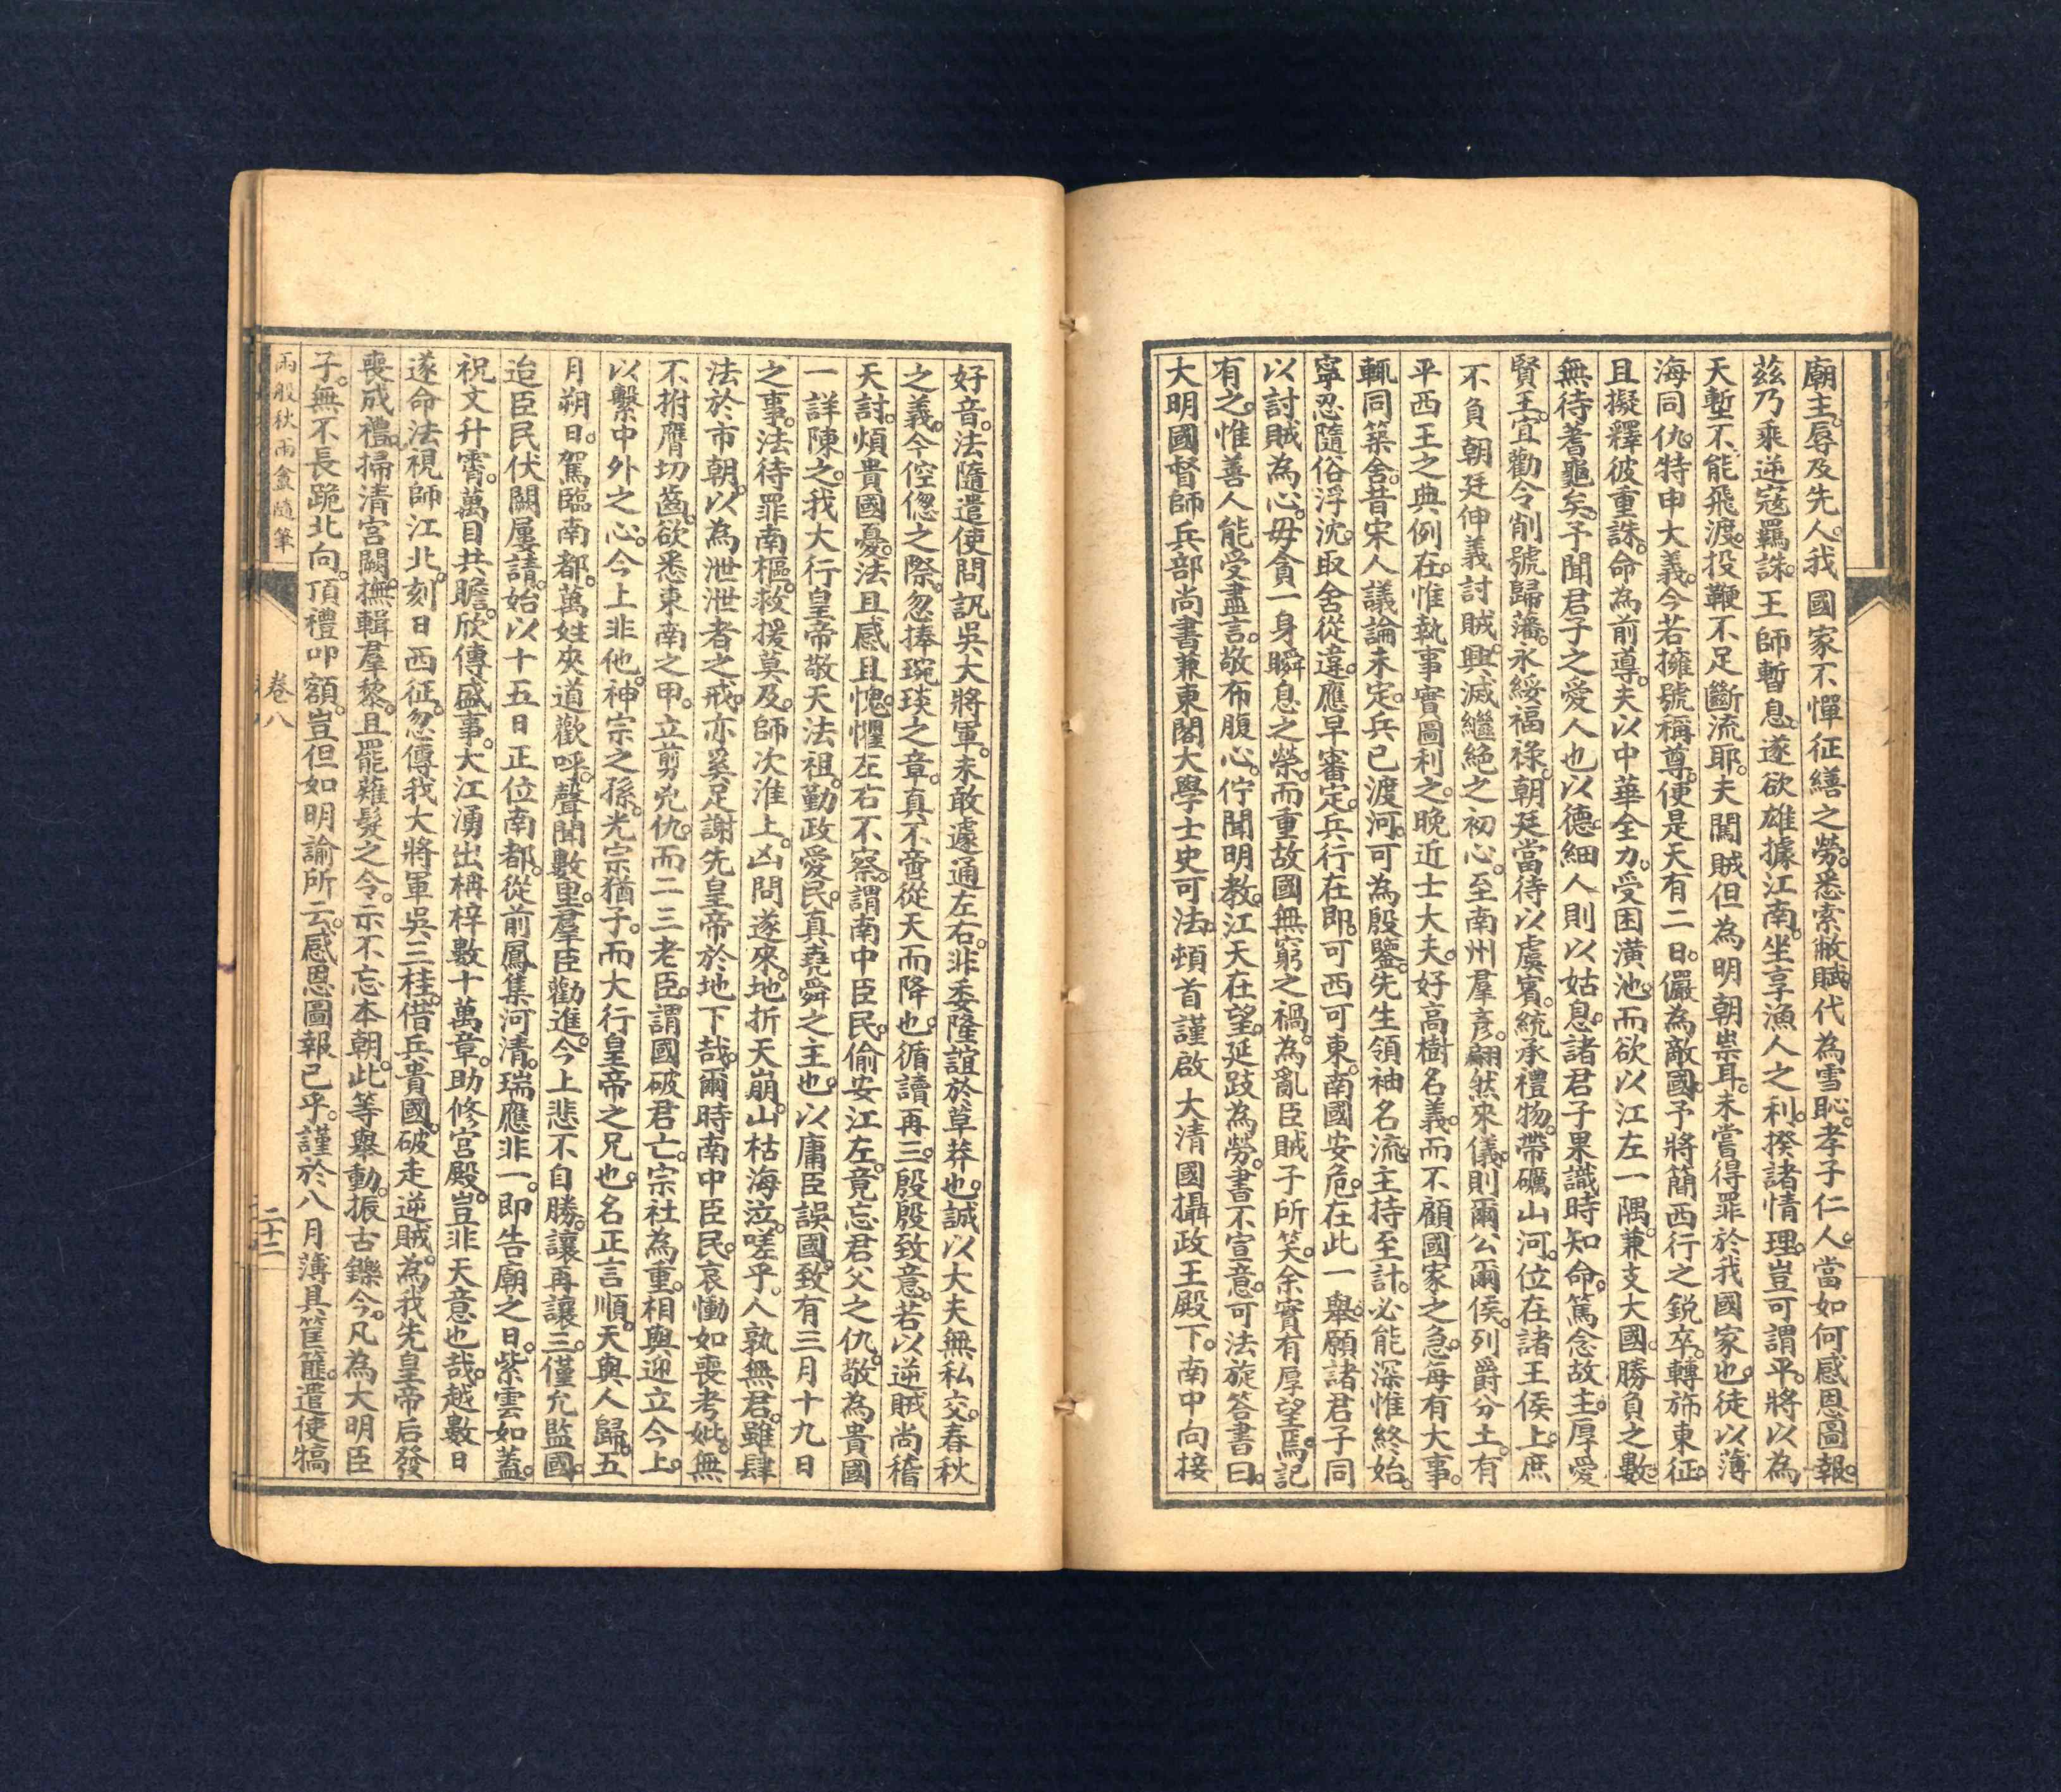 廟主。辱及先人。我國家不憚征繕之勞。悉索敝賦。代為雪恥。孝子仁人。當如何感恩圖報。
茲乃乘逆寇羈誅。王師暫息。遂欲雄據江南。坐享漁人之利。揆諸情理。豈可謂平。將以為
天塹不能飛渡。投鞭不足斷流耶。夫闖賊但為明朝祟耳。未嘗得罪於我國家也。徒以薄
海同仇。特申大義。今若擁號稱尊。便是天有二日。儼為敵國。予將簡西行之銳卒。轉旆東征。
且擬釋彼重誅。命為前導。夫以中華全力。受困潢池。而欲以江左一隅。兼支大國。勝負之數。
無待蓍龜矣。予聞君子之愛人也以德。細人則以姑息。諸君子果識時知命。篤念故主。厚愛
賢王。宜勸令削號歸藩。永綏福祿。朝廷當待以虞賓。統承禮物。帶礪山河。位在諸王侯上。庶
不負朝廷伸義討賊。興滅繼絕之初心。至南州羣彥。翩然來儀。則爾公爾侯。列爵分土。有
平西王之典例在。惟執事實圖利之。晚近士大夫。好高樹名義。而不顧國家之急。每有大事。
輒同築舍。昔宋人議論未定。兵已渡河。可為殷鑒。先生領袖名流。主持至計。必能深惟終始。
寧忍隨俗浮沈。取舍從違。應早審定。兵行在即。可西可東。南國安危。在此一舉。願諸君子同
以討賊為心。毋貪一身瞬息之榮。而重故國無窮之禍。為亂臣賊子所笑。余實有厚望焉。記
有之。惟善人能受盡言。敬布腹心。佇聞明教。江天在望。延跂為勞。書不宣意。可法旋答書曰。
大明國督師兵部尚書兼東閣大學士史可法。頓首謹啟 大清國攝政王殿下。南中向接
好音。法隨遣使問訊吳大將軍。未敢遽通左右。非委隆誼於草莽也。誠以大夫無私交。春秋
之義。今倥傯之際。忽捧琬琰之章。真不啻從天而降也。循讀再三。殷殷致意。若以逆賊尚稽
天討。煩貴國憂。法且感且愧。懼左右不察。謂南中臣民。偷安江左。竟忘君父之仇。敬為貴國
一詳陳之。我大行皇帝敬天法祖。勤政愛民。真堯舜之主也。以庸臣誤國。致有三月十九日
之事。法待罪南樞。救援莫及。師次淮上。凶問遂來。地折天崩。山枯海泣。嗟乎。人孰無君。雖肆
法於市朝。以為泄泄者之戒。亦奚足謝先皇帝於地下哉。爾時南中臣民。哀慟如喪考妣。無
不拊膺切齒。欲悉東南之甲。立剪兇仇。而二三老臣。謂國破君亡。宗社為重。相與迎立今上。
以繫中外之心。今上非他。神宗之孫。光宗猶子。而大行皇帝之兄也。名正言順。天與人歸。五
月朔日。駕臨南都。萬姓夾道歡呼。聲聞數里。羣臣勸進。今上悲不自勝。讓再讓三。僅允監國。
迨臣民伏闕屢請。始以十五日正位南都。從前鳳集河清。瑞應非一。即告廟之日。紫雲如蓋。
祝文升霄。萬目共瞻。欣傳盛事。大江湧出枏梓數十萬章。助修宮殿。豈非天意也哉。越數日
遂命法視師江北。刻日西征。忽傳我大將軍吳三桂。借兵貴國。破走逆賊。為我先皇帝后發
喪成禮。掃清宮闕。撫輯羣黎。且罷薙髮之令。示不忘本朝。此等舉動。振古鑠今。凡為大明臣
子。無不長跪北向。頂禮叩額。豈但如明諭所云。感恩圖報已乎。謹於八月薄具筐篚。遣使犒
兩般秋雨盦隨筆 卷八 二十二